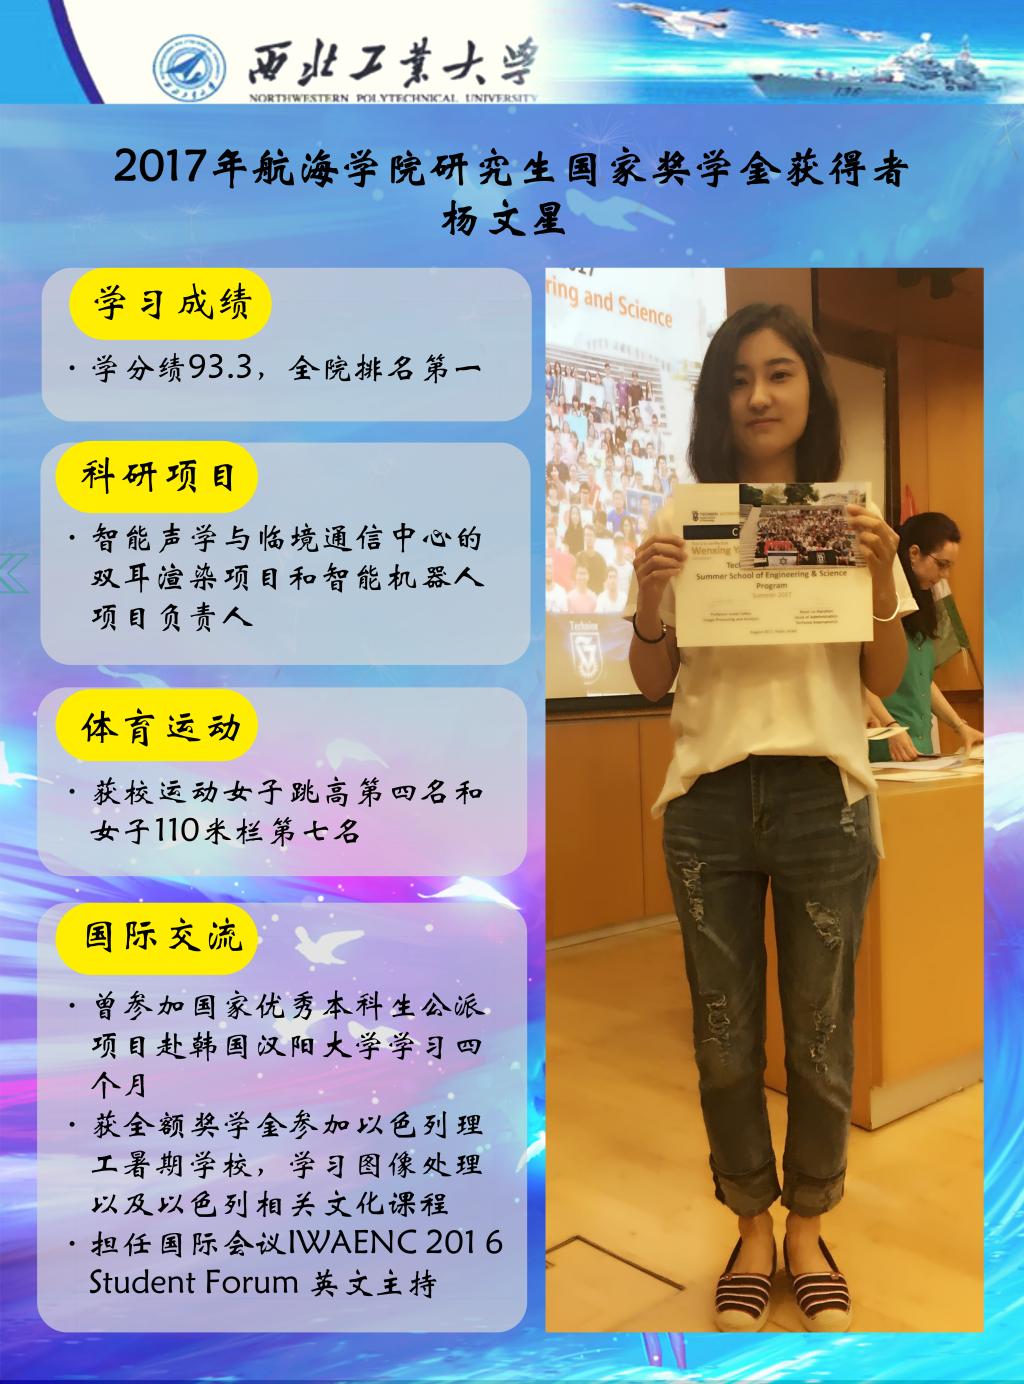 西北工业大学
NORTHWESTERN POLYTECHNICAL UNIVERSITY
2017年航海学院研究生国家奖学金获得者
杨文星
学习成绩
· 学分绩93.3，全院排名第一
科研项目
· 智能声学与临境通信中心的
双耳渲染项目和智能机器人
项目负责人
体育运动
· 获校运动女子跳高第四名和
女子110米栏第七名
国际交流
· 曾参加国家优秀本科生公派
项目赴韩国汉阳大学学习四
个月
· 获全额奖学金参加以色列理
工暑期学校，学习图像处理
以及以色列相关文化课程
· 担任国际会议IWAENC 2016
Student Forum 英文主持
2017
ring and Science
Technion
Wenxing
Summer School of Engineering & Science
Program
Summer 2017